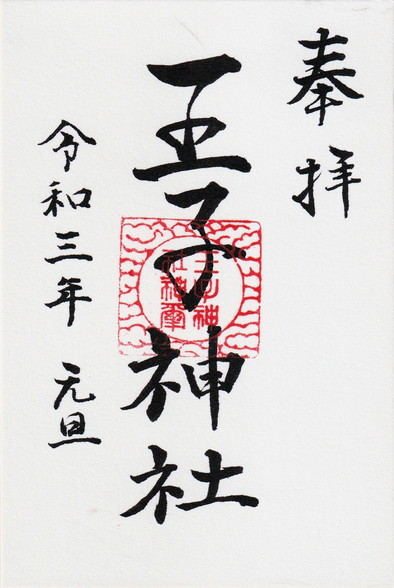 奉拝
王子神社
王子神社神璽
令和三年 元旦